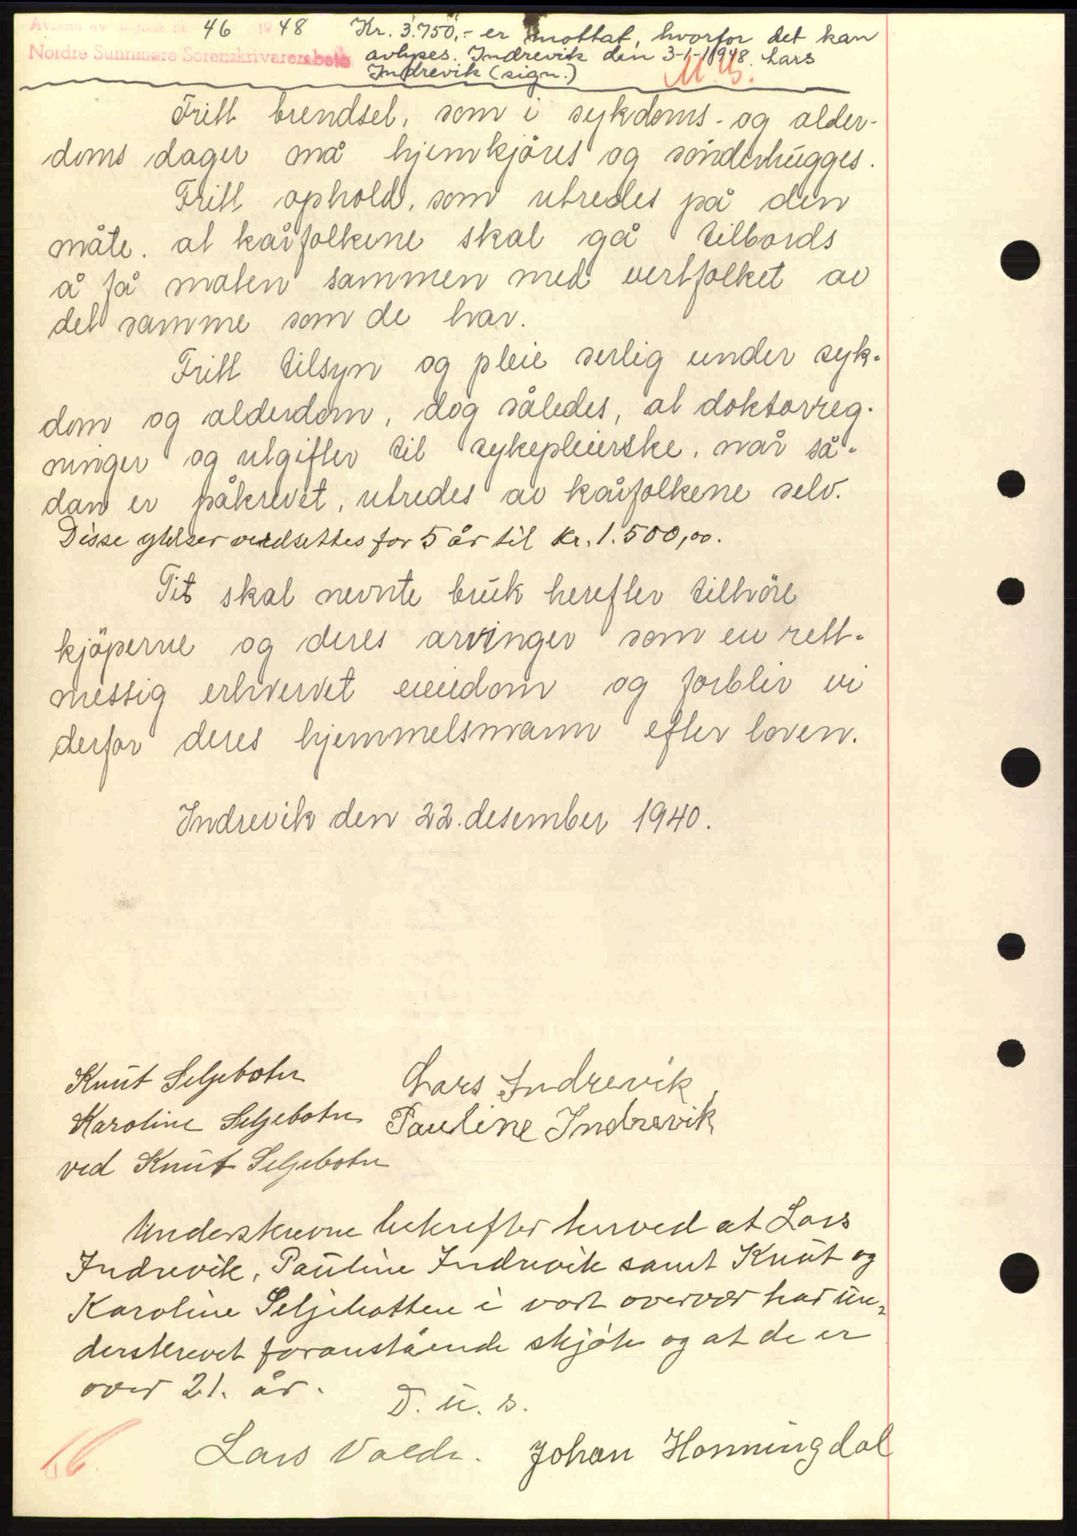 46 1948 Kr. 3.750,- er mottat, hvorfor det kan
Nordre Sunnmøre Sorenskrivarembete avlyses. Indrevik den 3-1-1948. Lars
Indrevik (sign.)
Fritt brendsel, som i sykdoms- og alder-
doms dager må hjemkjøres og sönderhugges.
Fritt ophold, som utredes på den
måte. at kårfolkene skal gå tilbords
å få maten sammen med vertfolket av
det samme som de har.
Fritt tilsyn og pleie serlig under syk-
dom og alderdom, dog således, at doktorreg-
ninger og utgifter til sykepleierske, når så-
dan er påkrevet, utredes av kårfolkene selv.
Disse ytelser verdsettes for 5 år til kr. 1.500,00.
Tit skal nevnte bruk herefter tilhöre
kjöperne og deres arvinger som en rett-
messig erhvervet eiendom og forblir vi
derfor deres hjemmelsmann efter loven.
Indrevik den 22. desember 1940.
Knut Seljebotn Lars Indrevik,
Karoline Seljebotn Pauline Indrevik
ved Knut Seljebotn
Underskrevne bekrefter herved at Lars
Indrevik, Pauline Indrevik samt Knut og
Karoline Seljebotten i vort overvær har un-
derskrevet foranstående skjøte og at de er
over 21. år.
D. u. s.
16 Lars Valde. Johan Honningdal